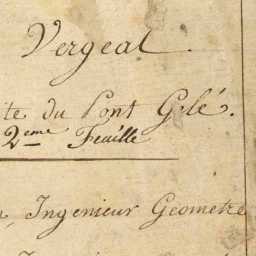 Vergeal.
ite du Pont Gelé.
2eme Feuille
Ingenieur Geometre